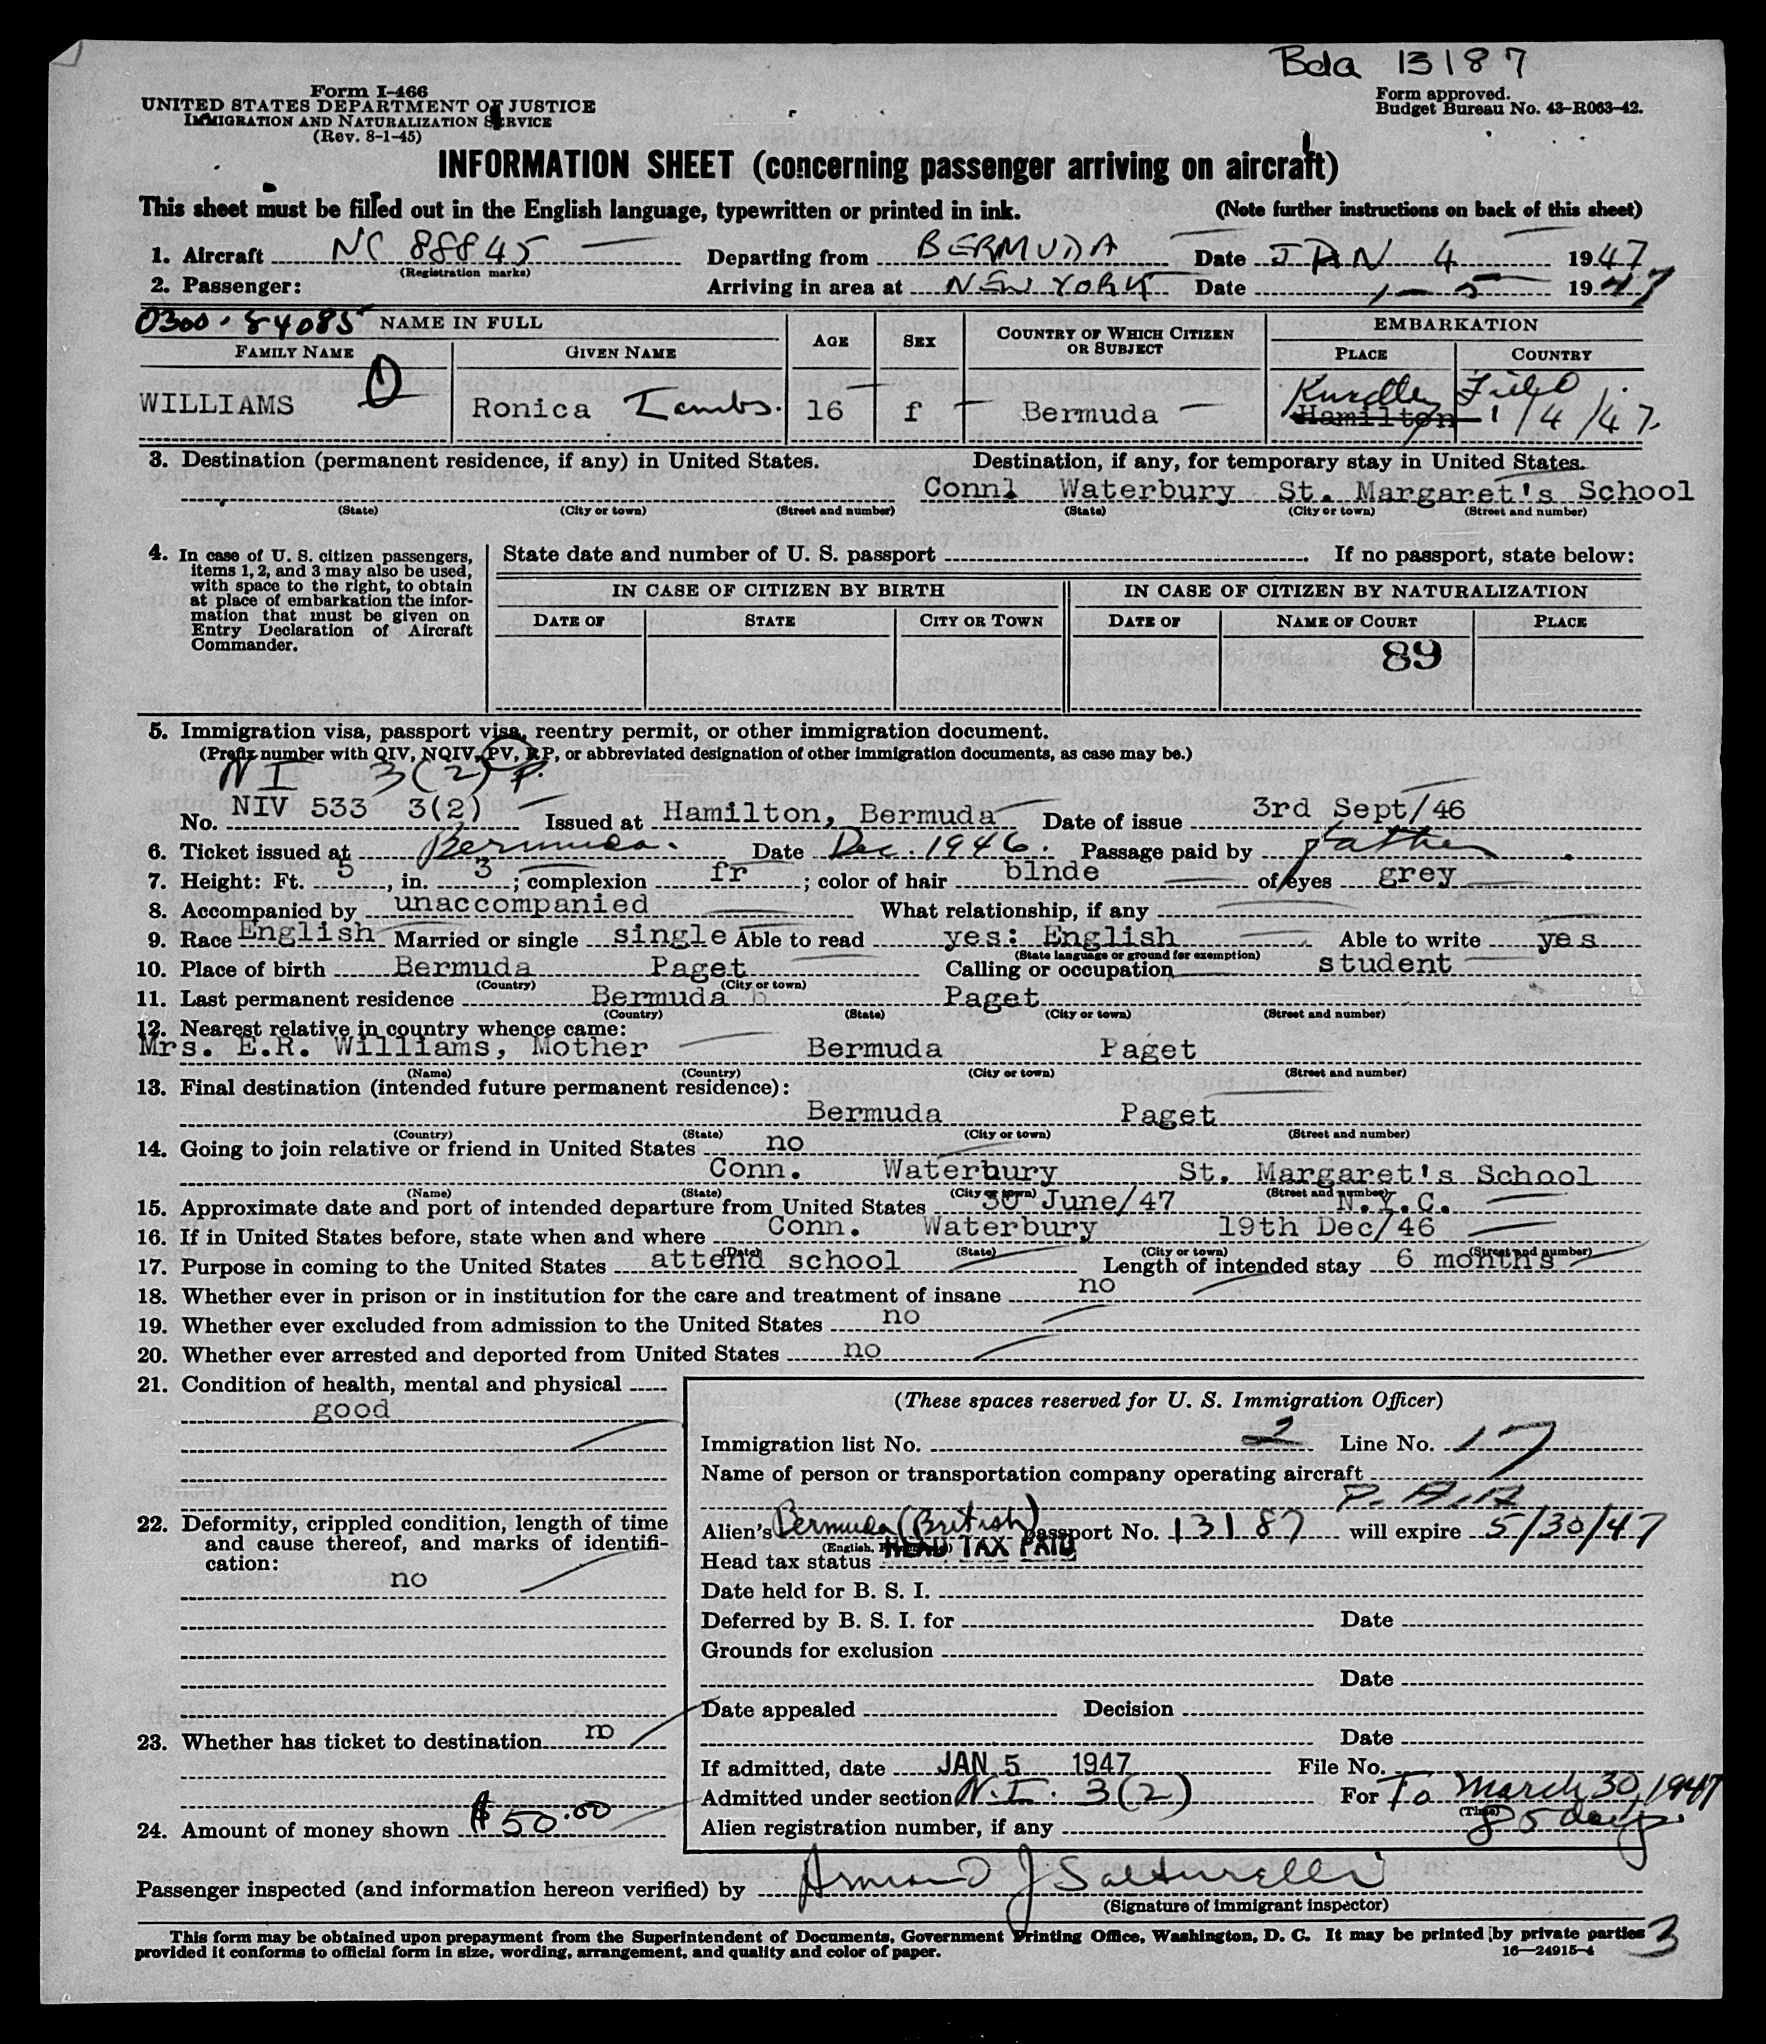 Bda 13187
Form I-466
UNITED STATES DEPARTMENT OF JUSTICE
IMMIGRATION AND NATURALIZATION SERVICE
(Rev. 8-1-45)
Form approved.
Budget Bureau No. 43-R063-42.
INFORMATION SHEET (concerning passenger arriving on aircraft)
This sheet must be filled out in the English language, typewritten or printed in ink. (Note further instructions on back of this sheet)
1. Aircraft NC 88845 Departing from BERMUDA Date JAN 4 1947
(Registration marks)
2. Passenger: Arriving in area at NEW YORK Date 1-5 1947
0300-84085 NAME IN FULL AGE SEX COUNTRY OF WHICH CITIZEN OR SUBJECT EMBARKATION
FAMILY NAME GIVEN NAME PLACE COUNTRY
Kindley Field
WILLIAMS Ronica 16 f Bermuda Hamilton 1/4/47
3. Destination (permanent residence, if any) in United States. Destination, if any, for temporary stay in United States.
Conn1 Waterbury St. Margaret's School
(State) (City or town) (Street and number) (State) (City or town) (Street and number)
4. In case of U. S. citizen passengers, items 1, 2, and 3 may also be used, with space to the right, to obtain at place of embarkation the information that must be given on Entry Declaration of Aircraft Commander.
State date and number of U. S. passport If no passport, state below:
IN CASE OF CITIZEN BY BIRTH IN CASE OF CITIZEN BY NATURALIZATION
DATE OF STATE CITY OR TOWN DATE OF NAME OF COURT PLACE
89
5. Immigration visa, passport visa, reentry permit, or other immigration document.
(Prefix number with QIV, NQIV, PV, RP, or abbreviated designation of other immigration documents, as case may be.)
N I 3(2) P.
No. NIV 533 3(2) Issued at Hamilton, Bermuda Date of issue 3rd Sept/46
6. Ticket issued at Bermuda. Date Dec. 1946. Passage paid by father
7. Height: Ft. 5, in. 3; complexion fr; color of hair blnde of eyes grey
8. Accompanied by unaccompanied What relationship, if any
9. Race English Married or single single Able to read yes: English Able to write yes
(State language or ground for exemption)
10. Place of birth Bermuda Paget Calling or occupation student
(Country) (City or town)
11. Last permanent residence Bermuda Paget
(Country) (State) (City or town) (Street and number)
12. Nearest relative in country whence came:
Mrs. E.R. Williams, Mother Bermuda Paget
(Name) (Country) (City or town) (Street and number)
13. Final destination (intended future permanent residence):
Bermuda Paget
(Country) (State) (City or town) (Street and number)
14. Going to join relative or friend in United States no
Conn. Waterbury St. Margaret's School
(Name) (State) (City or town) (Street and number)
15. Approximate date and port of intended departure from United States 30 June/47 N.Y.C.
16. If in United States before, state when and where Conn. Waterbury 19th Dec/46
(Date) (State) (City or town) (Street and number)
17. Purpose in coming to the United States attend school Length of intended stay 6 months
18. Whether ever in prison or in institution for the care and treatment of insane no
19. Whether ever excluded from admission to the United States no
20. Whether ever arrested and deported from United States no
21. Condition of health, mental and physical
good
22. Deformity, crippled condition, length of time and cause thereof, and marks of identification:
no
23. Whether has ticket to destination no
24. Amount of money shown $50.00
(These spaces reserved for U. S. Immigration Officer)
Immigration list No. 2 Line No. 17
Name of person or transportation company operating aircraft
P. A. A
Alien's Bermuda (British) passport No. 13187 will expire 5/30/47
Head tax status HEAD TAX PAID
Date held for B. S. I.
Deferred by B. S. I. for Date
Grounds for exclusion
Date
Date appealed Decision
Date
If admitted, date JAN 5 1947 File No.
Admitted under section N.I. 3(2) For To March 30, 1947
(Time)
Alien registration number, if any 85 days
Passenger inspected (and information hereon verified) by Armand J Salturelli
(Signature of immigrant inspector)
This form may be obtained upon prepayment from the Superintendent of Documents, Government Printing Office, Washington, D. C. It may be printed by private parties
provided it conforms to official form in size, wording, arrangement, and quality and color of paper. 16—24915-4
3